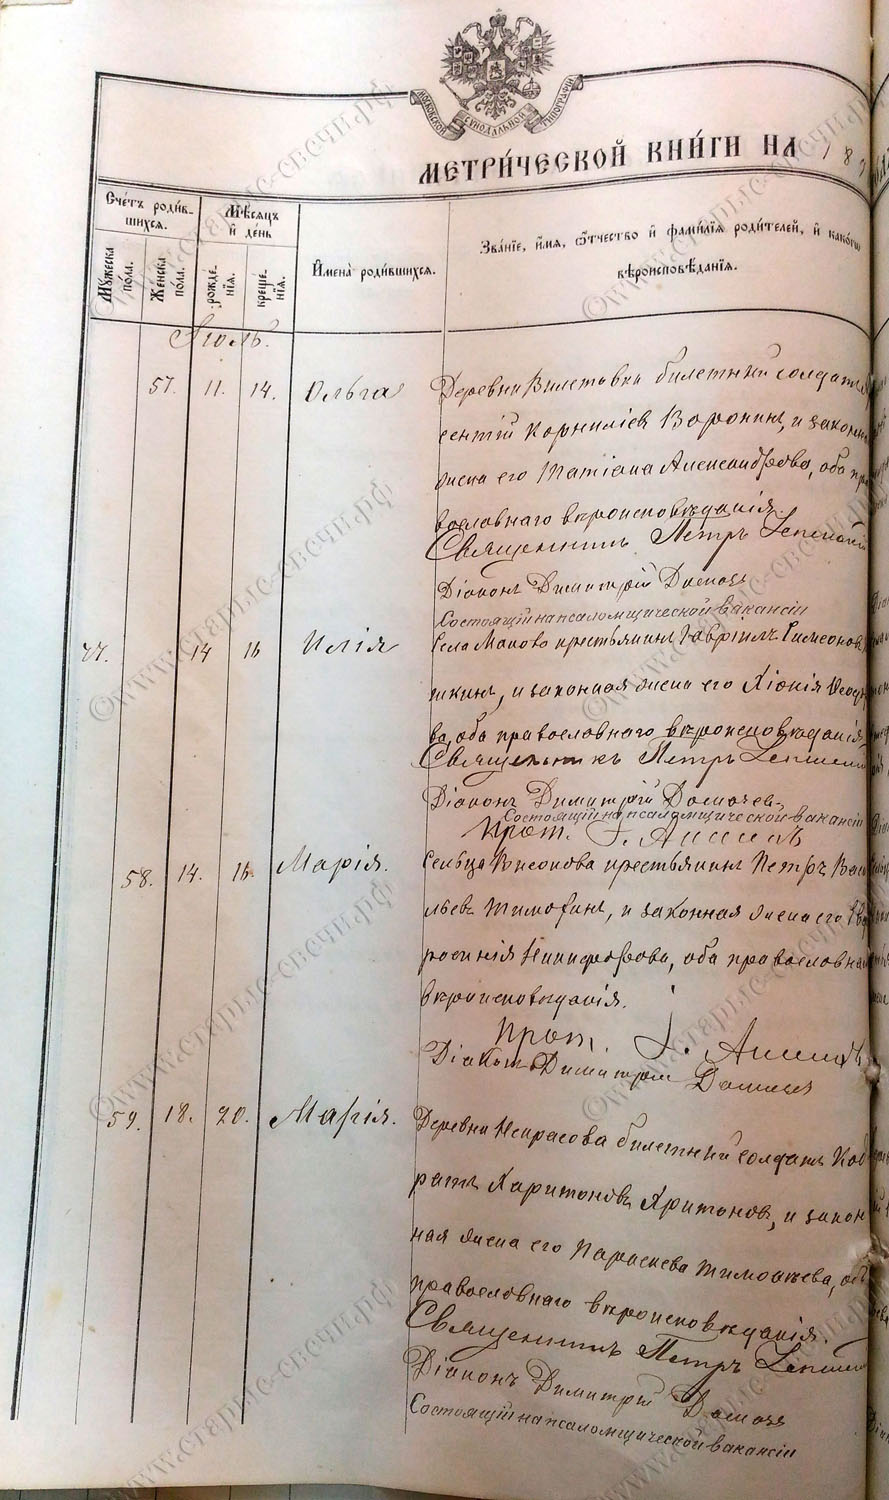 МОСКОВСКОЙ СѴНОДАЛЬНОЙ ТИПОГРАФІИ
МЕТРИ́ЧЕСКОЙ КНИ́ГИ НА 18
Счётъ роди́в-
шихся.
Мѣ́сяцъ
и҆ де́нь
Мꙋ́жеска
по́ла.
Же́нска
по́ла.
рожде́-
нїѧ.
креще́-
нїѧ.
И҆мена̀ роди́вшихся.
Зва́нїе, и҆́мя, ѻ҆́тчество и҆ фами́лїѧ роди́телей, и҆ како́гѡ
вѣроисповѣ́данїѧ.
Іюль.
57. 11. 14. Ольга
Деревни билетный солдатъ
сентій Корниліев Воронинъ, и закон
жена его Татіана Александрова, оба пра
вославнаго вѣроисповѣданія.
Священникъ Петръ
Діаконъ Димитрій
Состоящій на псаломщической вакансіи
77. 14 16 Илія
Села Маково крестьянинъ Гавріилъ Симеонов
шкинъ, и законная жена его Хіонія
ва, оба православнаго вѣроисповѣданія
Священникъ Петръ
Діаконъ Димитрій
Состоящій на псаломщической вакансіи
Прот. І.
58. 14. 16. Марія.
Сельца крестьянинъ Петръ Васи
льевъ Тимофинъ, и законная жена его Ев
росинія Никифорова, оба православнаго
вѣроисповѣданія.
Прот. І.
Діаконъ Димитрій
59. 18. 20. Марія.
Деревни Некрасова билетный солдатъ Код
ратъ Харитоновъ Харитоновъ, и закон
ная жена его Параскева Тимоѳеева, оба
православнаго вѣроисповѣданія.
Священникъ Петръ
Діаконъ Димитрій
Состоящій на псаломщической вакансіи
©www.старые-свечи.рф